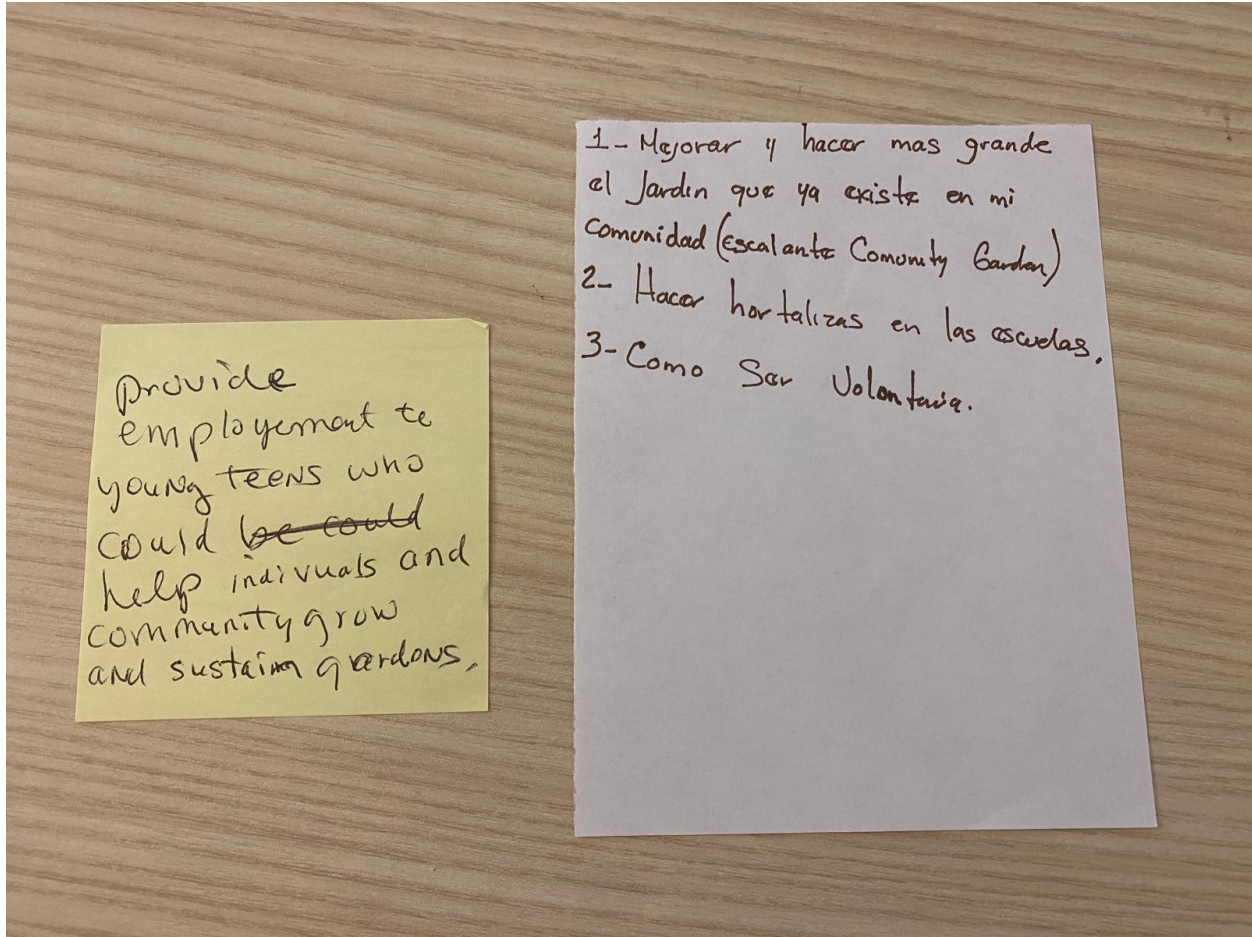 provide
employement to
young teens who
could be could
help indivuals and
community grow
and sustaim gardons.
1- Mejorar y hacer mas grande
el Jardin que ya existe en mi
comunidad (Escalante Comunity Garden)
2- Hacer hortalizas en las escuelas.
3- Como Ser Volontaria.